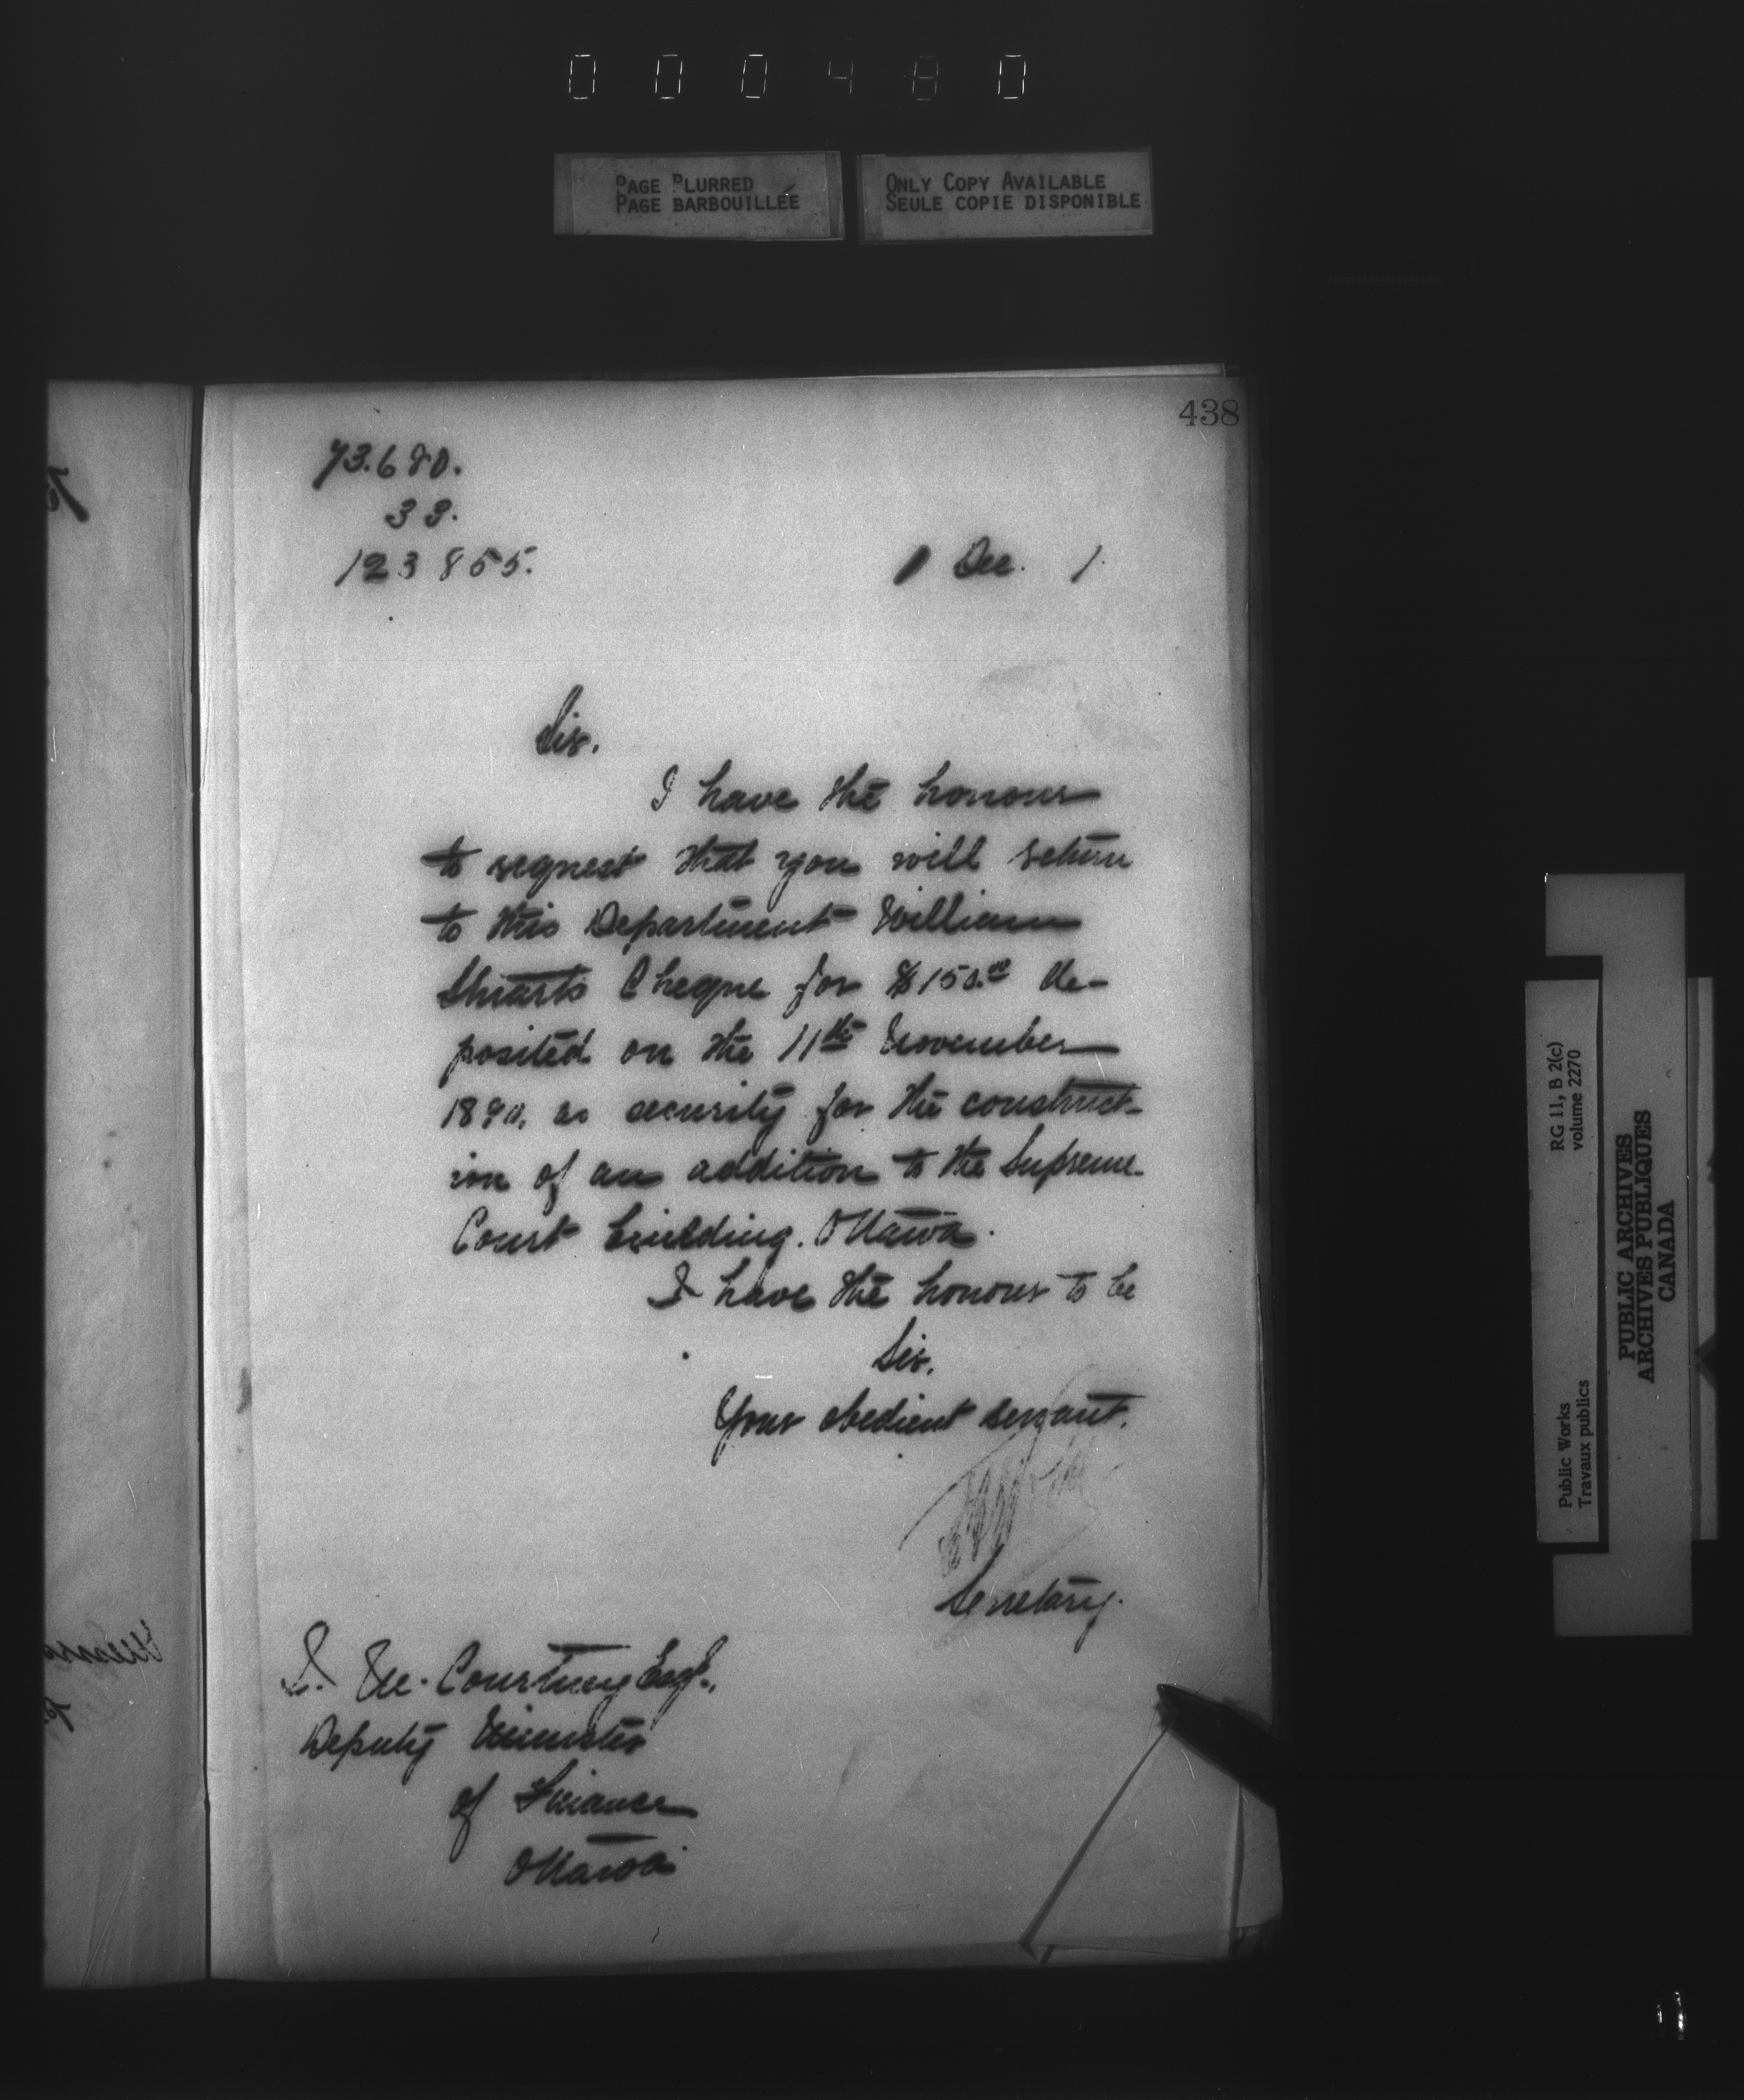 000480
PAGE BLURRED
PAGE BARBOUILLÉE
ONLY COPY AVAILABLE
SEULE COPIE DISPONIBLE
438
73.680.
33.
123855.
1 Dec. 1.
Sir,
I have the honour
to request that you will return
to this Department William
Stuarts Cheque for $150.00 de-
posited on the 11th November
1890, as security for the construct-
ion of an addition to the Supreme
Court building. Ottawa.
I have the honour to be
Sir,
Your obedient servant.
Secretary.
J. M. Courtney Esq.,
Deputy Minister
of Finance
Ottawa
Public Works
Travaux publics
RG 11, B 2(c)
volume 2270
PUBLIC ARCHIVES
ARCHIVES PUBLIQUES
CANADA